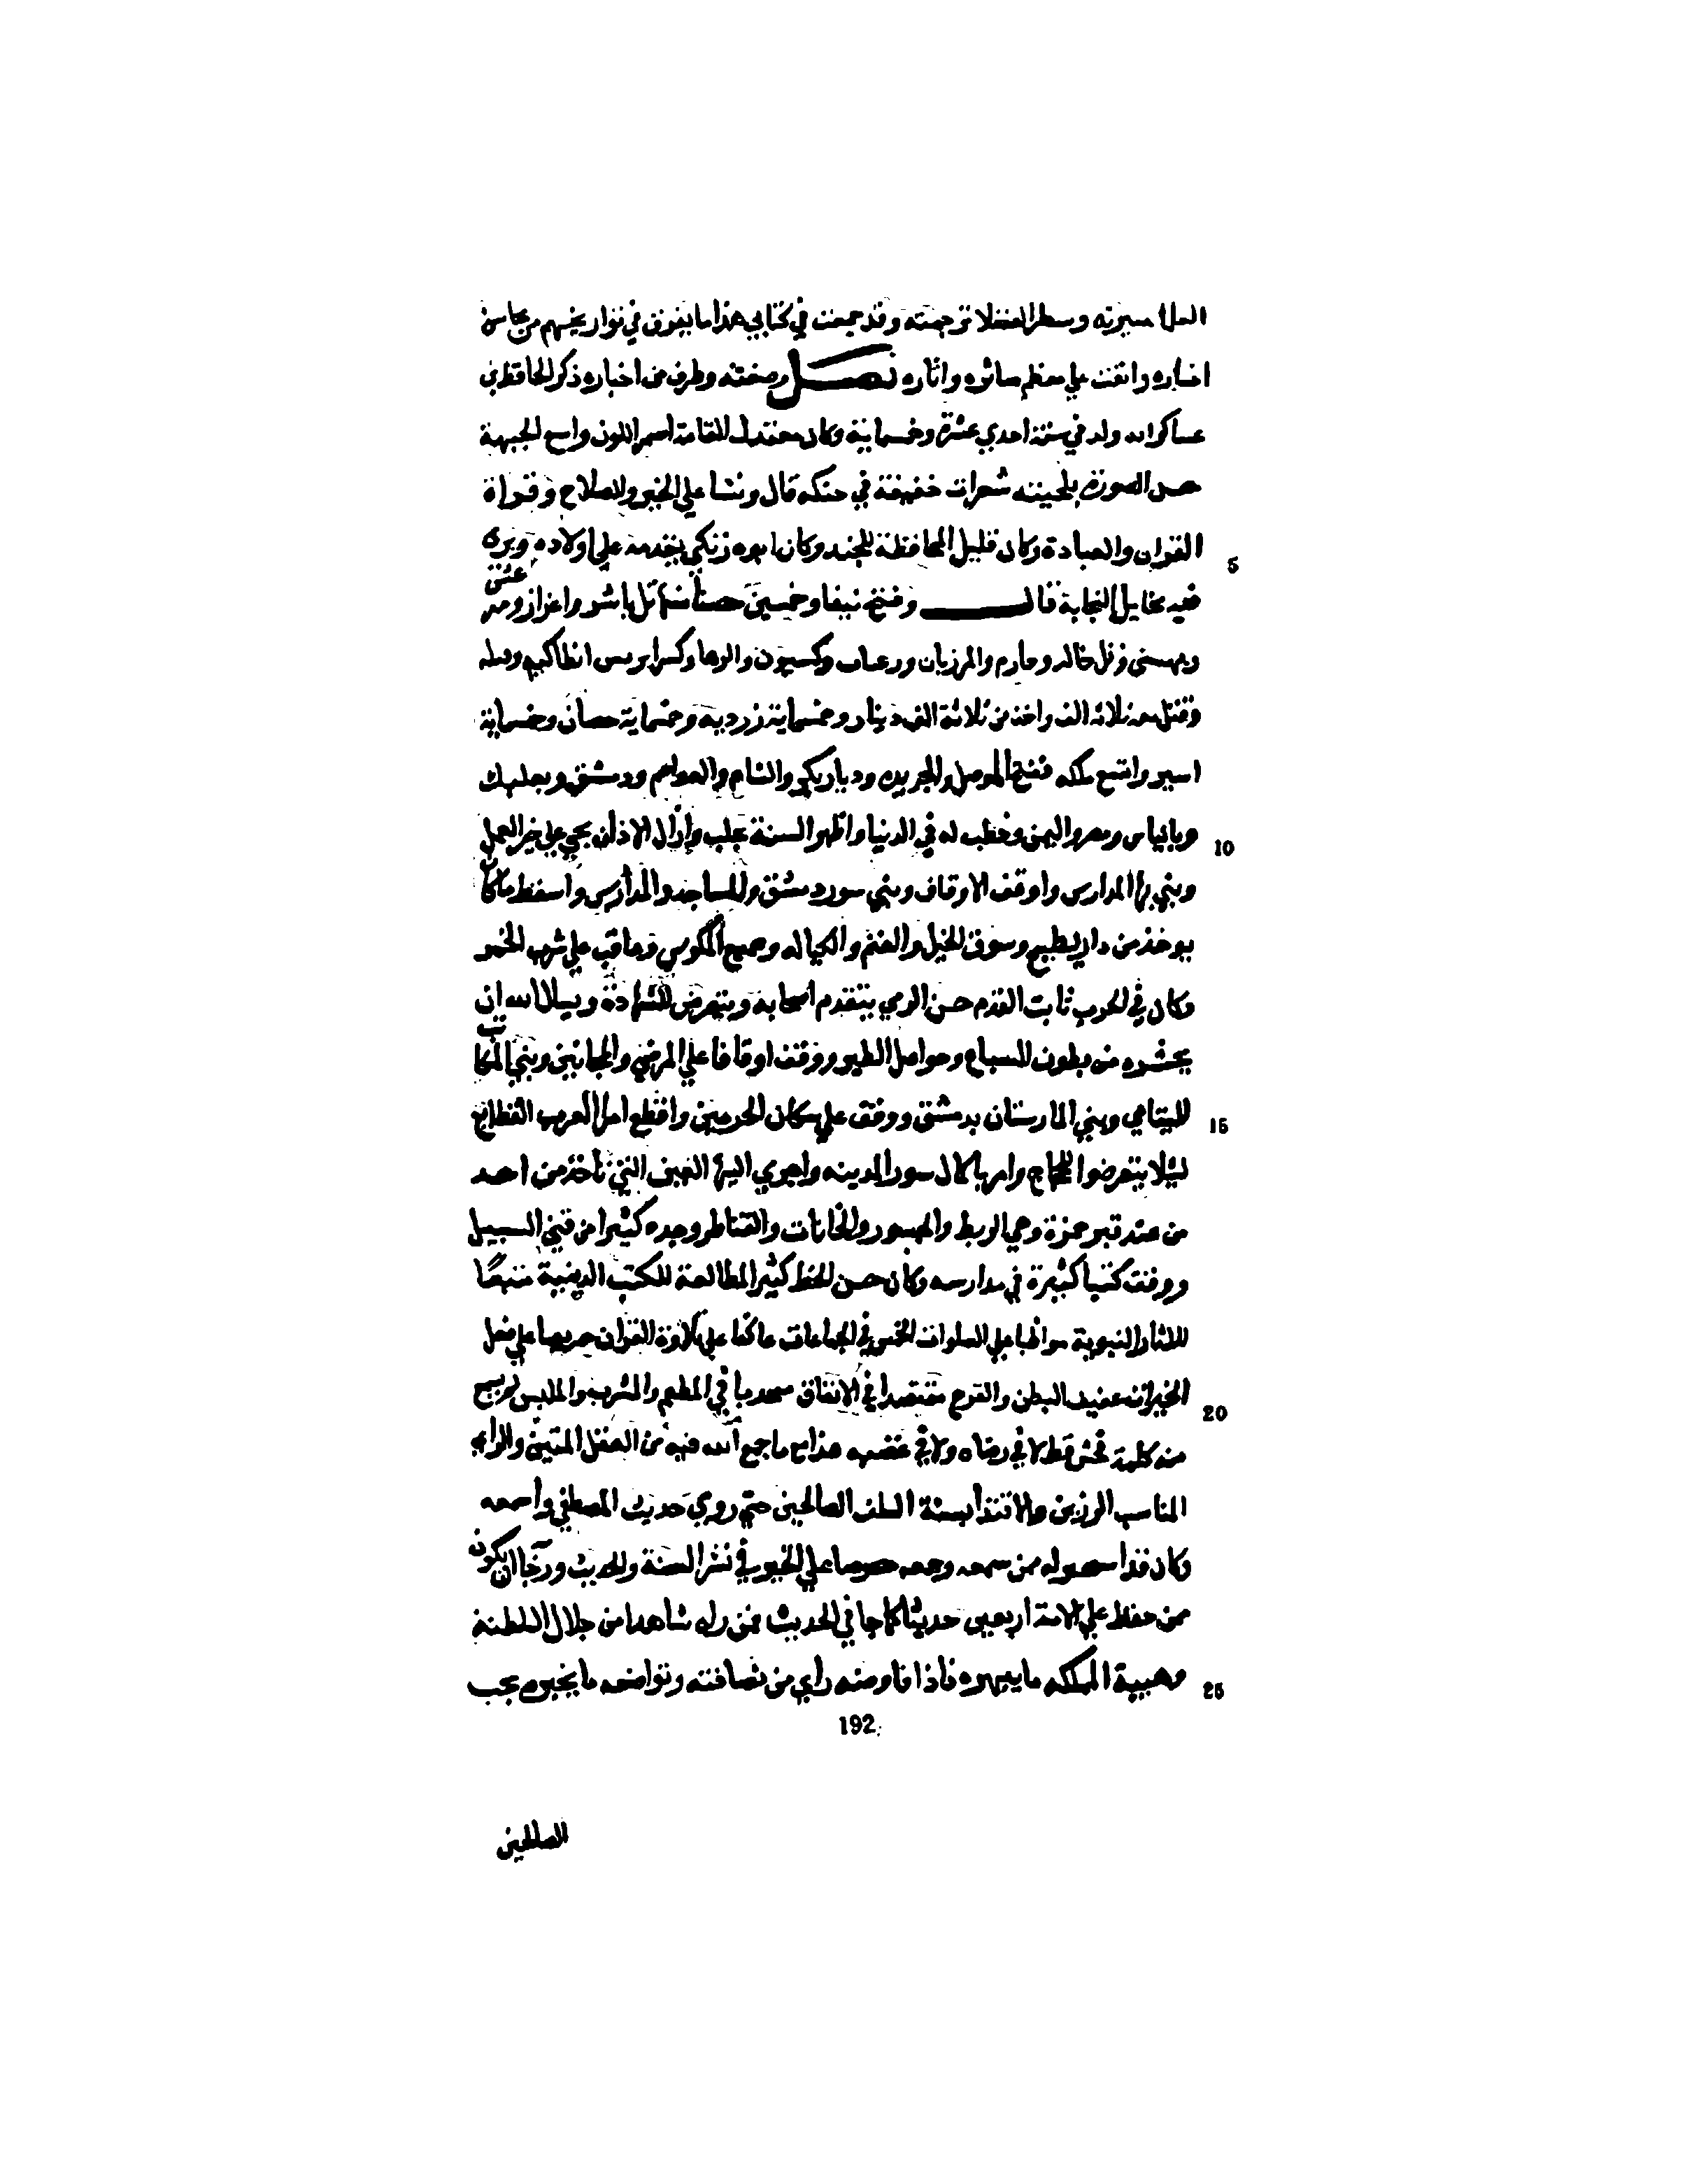 العلما سيرته وسطر الفضلا ترجمته وقد جمعت في كتابي هذا ما يفوق في تواريخهم من محاسن
اخباره واتفت علي معظم ماثره واثاره فصل صفته وطرف من اخباره ذكر الحافظ بن
عساكر انه ولد في سنة احدي عشرة وخمسماية وكان معتدل القامة اسمر اللون واسع الجبهة
حسن الصورة بلحيته شعرات خفيفة في حنكه قال ونشا علي الخير والصلاح وقراة
القران والعبادة وكان قليل المحافظة للجند وكان ابوه زنكي يقدمه علي اولاده ويري
5
فيه مخايل النجابة قال وفتح نيفا وخمسين حصنا منها تل باشر واعزاز ومرعش
وبهسني وتل خالد وحارم والمرزبان ورعبان وكيسون والرها وكسر ابرنس انطاكيه وقتله
وقتل معه ثلاثه الف واخذ من ثلاثة الف دينار وخمسماية زرديه وخمسماية حصان وخمسماية
اسير واتسع ملكه ففتح الموصل والجزيره وديار بكر والشام والعواصم ودمشق وبعلبك
وبانياس ومصر واليمن وخطب له في الدنيا واظهر السنة بحلب وازال الاذان بحي علي خير العمل
10
وبني بها المدارس واوقف الاوقاف وبني سور دمشق والمساجد والمدارس واسقط ما كان
يوخذ من دار بطيخ وسوق الخيل والغنم والكياله وجميع المكوس وعاقب علي شرب الخمر
وكان في الحرب ثابت القدم حسن الرمي يتقدم اصحابه ويتعرض للشهادة ويسال الله ان
يحشره من بطون السباع وحواصل الطير ووقف اوقافا علي المرضي والمجانين وبني المكاتب
لليتامي وبني المارستان بدمشق ووقف علي سكان الحرمين واقطع امرا العرب القطايع
15
ليلا يتعرضوا للحجاج وامر باكمال سور المدينه واجري اليها العين التي تاخذ من احد
من عند قبر حمزة وبني الربط والجسور والخانات والقناطر وجدد كثيرا من قني السبيل
ووقف كتبا كثيرة في مدارسه وكان حسن الخط كثير المطالعة للكتب الدينية متتبعا
للاثار النبوية مواظبا علي الصلوات الخمس في الجماعات عاكفا علي تلاوة القران حريصا علي فعل
الخيرات عفيف البطن والفرج مقتصدا في الانفاق متحريا في المطعم والمشرب والملبس لم يسمع
20
منه كلمة فحش قط لا في رضاه ولا في غضبه هذا مع ما جمع الله فيه من العقل المتين والراي
المناسب الرزين والاقتدا بسنة السلف الصالحين حتي روي حديث المصطفي واسمعه
وكان قد استجيز له ممن سمعه وجمعه حرصا علي الخير في نشر السنة والحديث ورجا ان يكون
ممن حفظ علي الامة اربعين حديثا كما جا في الحديث فمن راه شاهد من جلال السلطنة
وهيبة الملكه ما يبهره فاذا فاوضه راي من لطافته وتواضعه ما يحيره يحب
25
192
الصالحين